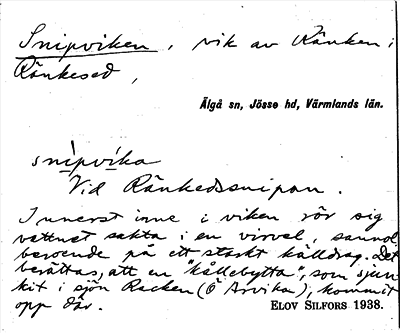 Snipviken, vik av Ränken i
Ränkesed,
Älgå sn, Jösse hd, Värmlands län.
snìpvíka
Vid Ränkedssnipan.
Innerst inne i viken rör sig
vattnet sakta i en virvel, sannol.
beroende på ett starkt källdrag. Det
berättas, att en "kållebytta", som sjun-
kit i sjön Racken (Ö Arvika), kommit
opp där.
ELOV SILFORS 1938.